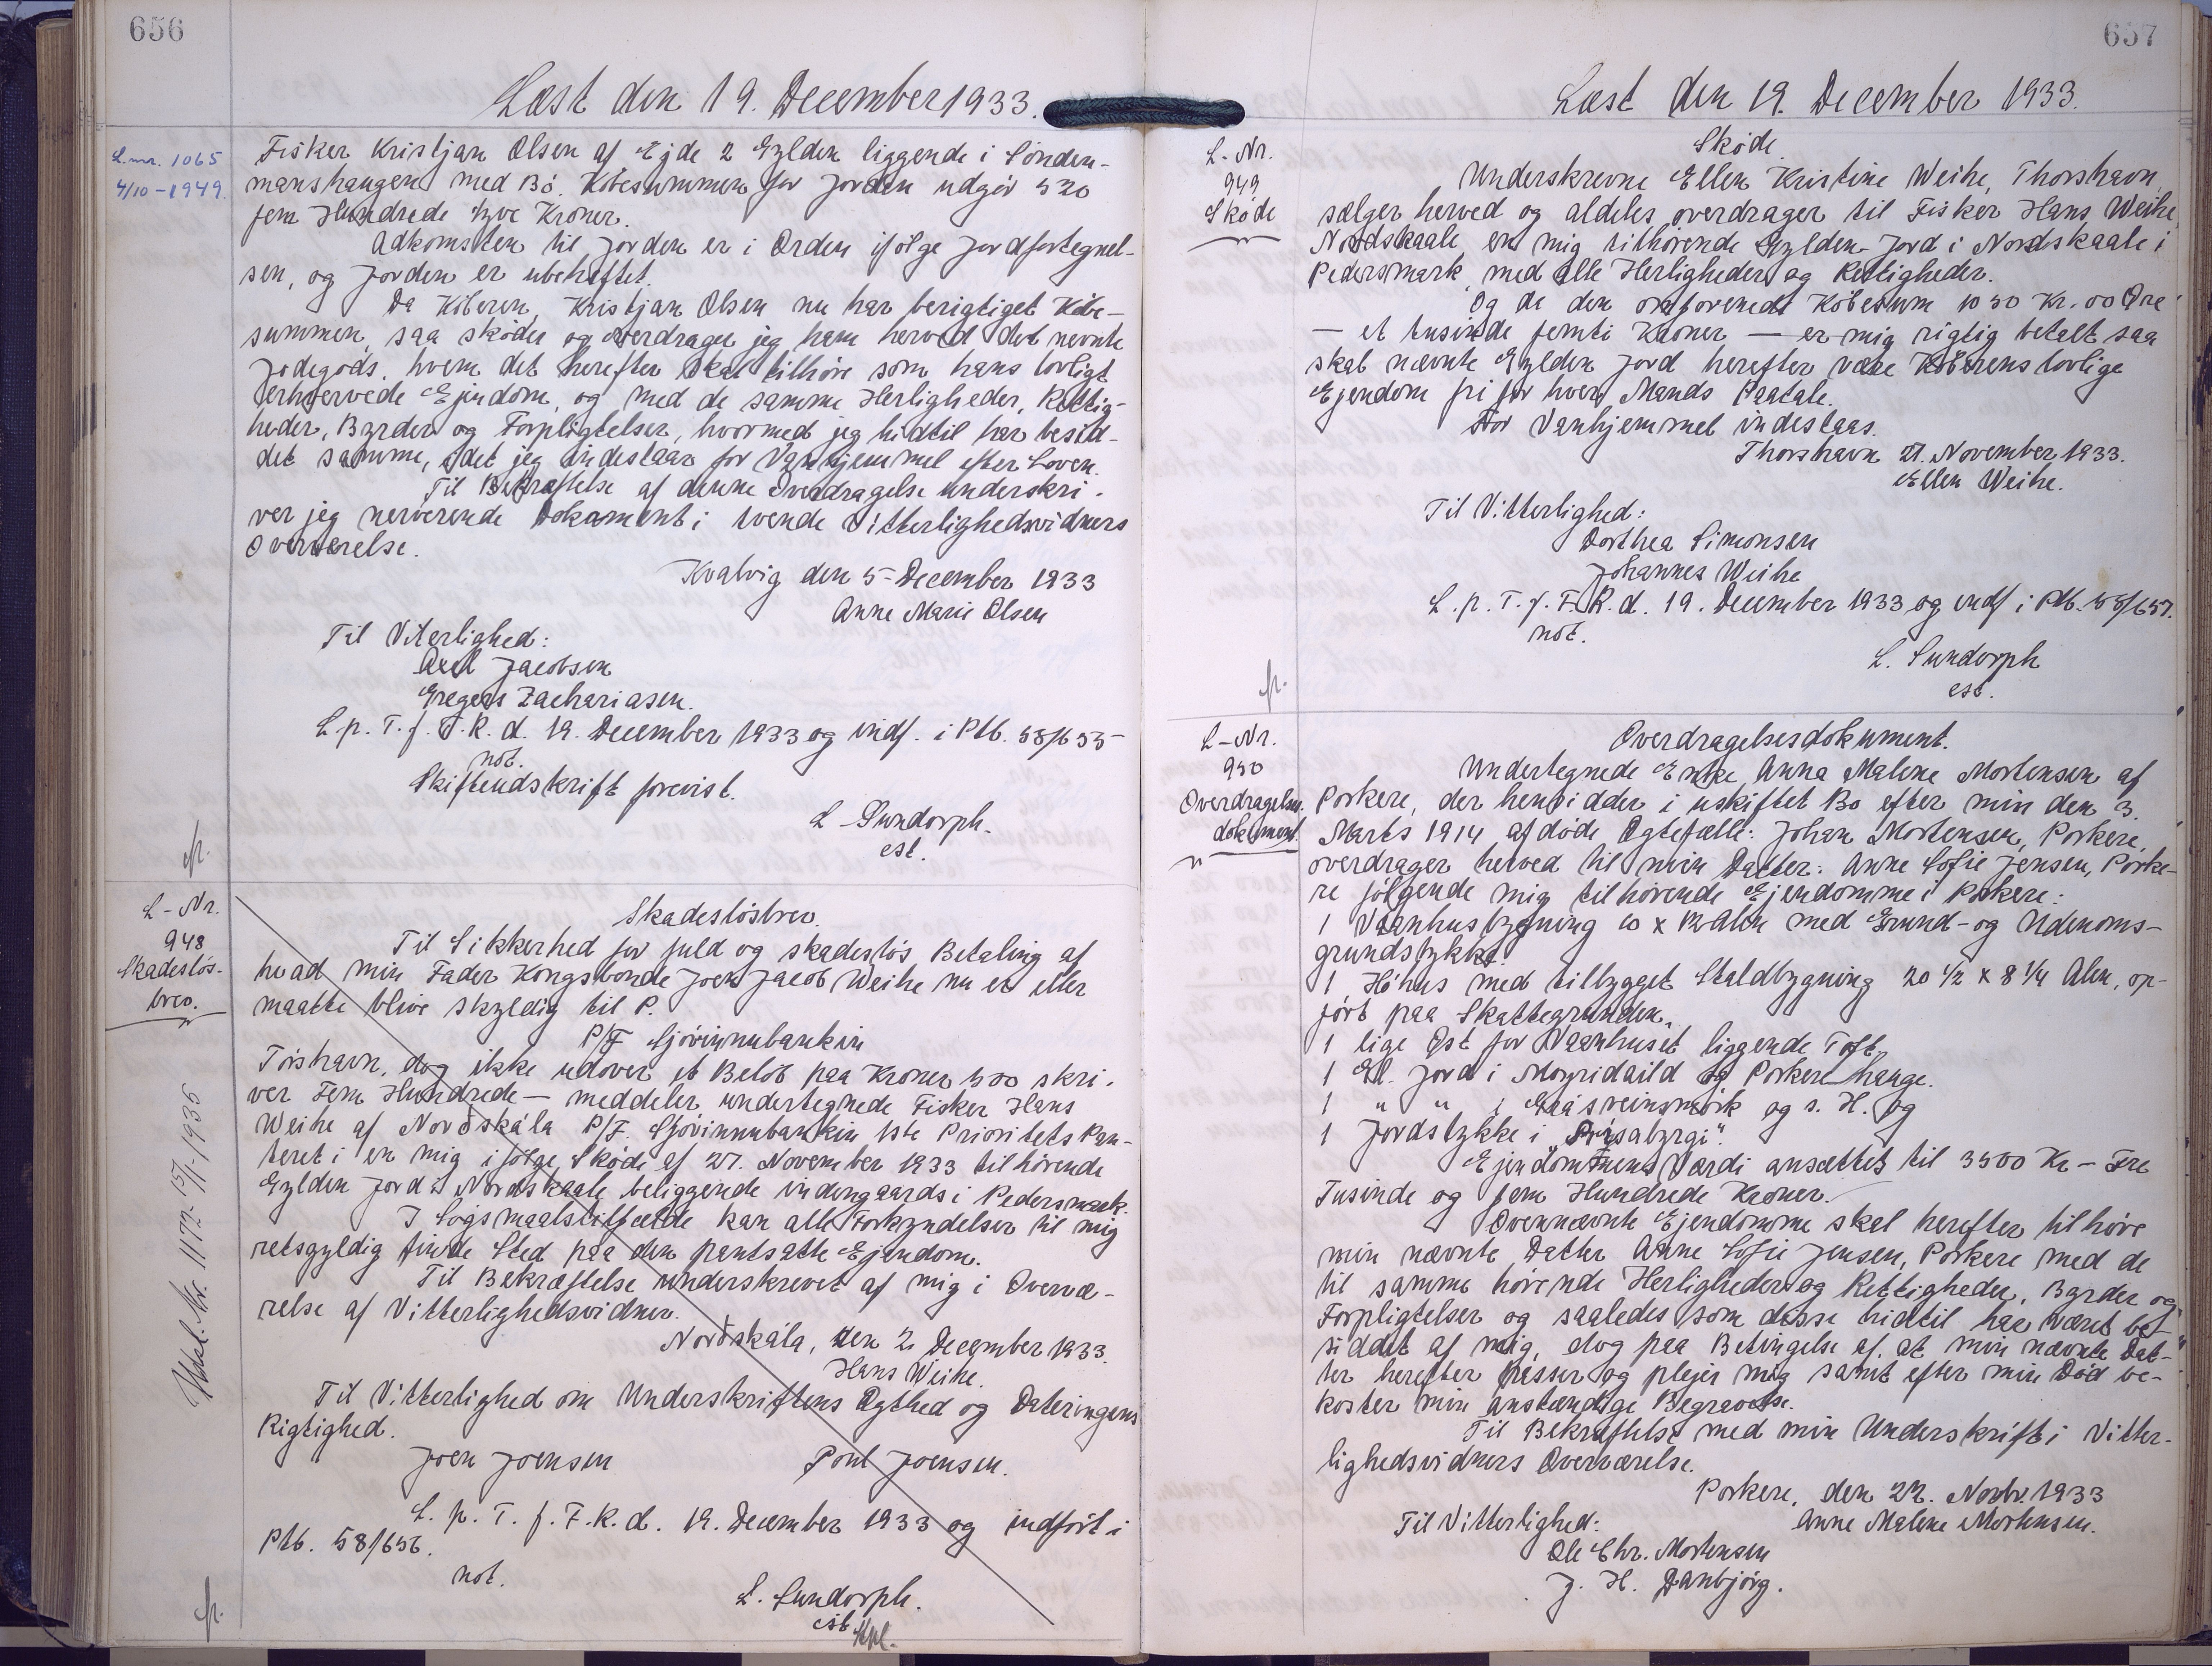 656
Læst den 19. December 1933.
L.nr. 1065
4/10-1949.
Fisker Kristjan Olsen af Ejde 2 Gylden liggende i Sónden-
manshaugen med Bó. Kóbesummen for Jorden udgór 520
fem Hundrede tyve Kroner.
Adkomsten til Jorden er i Orden ifólge Jordfortegnel-
sen, og Jorden er ubeheftet.
Da Kóberen, Kristjan Olsen nu har berigtiget Kóbe-
summen, saa skóder og overdrager jeg ham herved det nevnte
Jodegods, hvem det herefter skal tilhóre som hans lovligt
erhvervede Ejendom, og med de samme Herligheder, Rettig-
heder, Byrder og Forpligtelser, hvormed jeg hidtil har besid-
det samme, idet jeg indestaar for Vanhjemmel efter Loven.
Til Bekræftelse af denne Overdragelse underskri-
ver jeg nerverende Dokument i tvende Vitterlighedsvidners
Overværelse.
Kvalvig den 5 December 1933
Anne Marie Olsen
Til Viterlighed:
Axel Jacobsen
Gregers Zachariasen.
L.p. T. f. F. R. d. 19. December 1933 og indf. i Ptb. 58/655
not.
Skifteudskrift forevist.
L Sundorph.
cst.
L-Nr.
948
Skadeslós-
brev.
Udsl. Nr. 1172 15/1-1935
Skadeslósbrev.
Til Sikkerhed for fuld og skadeslós Betaling af
hvad min Fader Kongsbonde Joen Jacob Weihe nu er eller
maatte blive skyldig til P.
P/F Sjóvinnubankin
Tórshavn, dog ikke udover et Belób paa Kroner 500 skri-
ver Fem Hundrede — meddeler undertegnede Fisker Hans
Weihe af Norðskála P/F. Sjóvinnubankin 1ste Prioritets Pan-
teret i en mig ifólge Skóde af 27. November 1933 tilhórende
Gylden Jord i Nordskaale beliggende indengaards i Pedersmark.
I Sógsmaalstilfælde kan alle Forkyndelser til mig
retsgyldig finde Sted paa den pantsatte Ejendom.
Til Bekræftelse underskrevet af mig i Overvæ-
relse af Vitterlighedsvidner.
Norðskála, den 2 December 1933.
Hans Weihe.
Til Vitterlighed om Underskriftens Ægthed og Dateringens
Rigtighed.
Joen Joensen Poul Joensen.
L. p. T. f. F. R. d. 19. December 1933 og indfórt i
Ptb. 58/656.
not.
L. Sundorph.
cst
657
Læst den 19. December 1933.
L-Nr.
949
Skóde
Skóde.
Underskrevne Ellen Kristine Weihe, Thorshavn,
sælger herved og aldeles overdrager til Fisker Hans Weihe,
Nordskaale en mig tilhórende Gylden Jord i Nordskaale i
Pedersmark, med alle Herligheder og Rettigheder.
Og da den omforenede Kóbesum 1050 Kr. 00 Øre
— et tusinde femti Kroner — er mig rigtig betalt saa
skal nævnte Gylden Jord herefter være Kóberens lovlige
Ejendom fri for hver Mands Paatale.
For Vanhjemmel indestaas.
Thorshavn 27. November 1933.
Ellen Weihe.
Til Vitterlighed:
Dorthea Simonsen
Johannes Weihe
L. p. T. f. F. R. d. 19. December 1933 og indf i Ptb. 58/657.
not.
L. Sundorph
cst.
L-Nr.
950
Overdragelses.
dokument.
Overdragelsesdokument.
Undertegnede Enke, Anna Malene Mortensen af
Porkere, der hensidder i uskiftet Bo efter min den 3.
Marts 1914 afdóde Ægtefælle: Johan Mortensen, Porkere,
overdrager herved til min Datter: Anne Sofie Jensen, Porke-
re fólgende mig tilhórende Ejendomme i Porkere:
1 Vaanhusbygning 10 x 12 Alen med Grund- og Udenoms-
grundstykke.
1 Hóhus med tilbygget Staldbygning 20 1/2 x 8 1/4 Alen, op-
fórt paa Skattegrunden.
1 lige Øst for Vaanhuset liggende Toft,
1 Gl. Jord i og Porkere hauge.
1 " " i og s. H. og
1 Jordstykke i
Ejendommens Værdi ansættes til 3500 Kr — Tre
Tusinde og fem Hundrede Kroner.
Ovennævnte Ejendomme skal herefter tilhóre
min nævnte Datter Anne Sofie Jensen, Porkere med de
til samme hórende Herligheder og Rettigheder, Byrder og
Forpligtelser og saaledes som disse hidtil har været be-
siddet af mig, dog paa Betingelse af, at min nævnte Dat-
ter herefter passer og plejer mig samt efter min Dód be-
koster min anstændige Begravelse.
Til Bekræftelse med min Underskrift i Vitter-
lighedsvidners Overværelse.
Porkere, den 22. Novbr. 1933
Til Vitterlighed: Anne Malene Mortensen.
Ole Chr. Mortensen
J. H. Danbjórg.